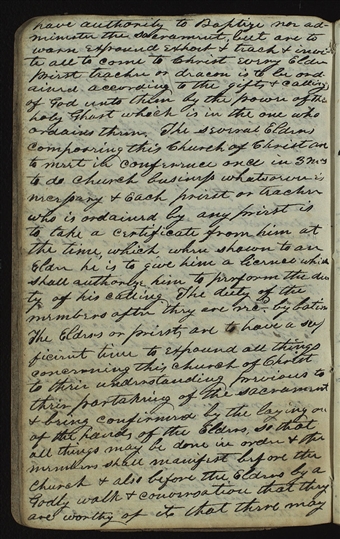 have authority to Baptize nor ad-
minister the sacrament, but are to
warn expound exhort & teach & invi-
te all to come to Christ every Elder
priest teacher or deacon is to be ord-
ained according to the gifts & calling
of God unto them by the power of the
holy Ghost which is in the one who
ordaines them. The several Elders
composeing this Church of Christ are
to meet in conference once in 3 mos
to do church business whatsoever is
necessary & Each priest or teacher
who is ordained by any priest is
to take a certificate from him at
the time, which when shown to an
Elder he is to give him a licence which
shall authorize him to perform the du
ty of his calling. The duty of the
members after they are recd. by batism
The Elders or priests are to have a suf
ficient time to expound all things
concerning this church of Christ
to their understanding previous to
their partakeing of the sacrament
& being confirmed by the laying on
of the hands of the Elders, so that
all things may be done in order & the
members shall manifest before the
church & also before the Elders by a
Godly walk & conversation that they
are worthy of it that there may